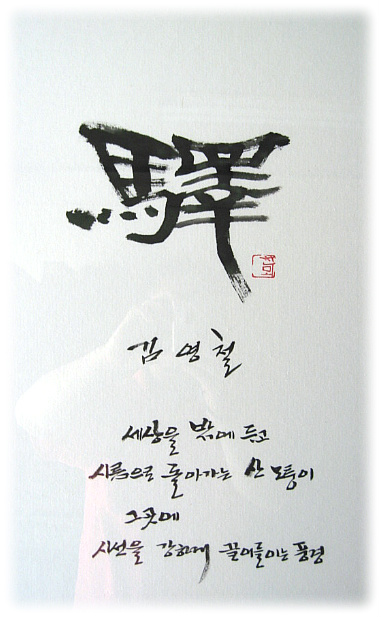 驛
김 영 철
세상을 밖에 두고
돌아가는 산 모퉁이
그곳에
시선을 강하게 끌어들이는 풍경